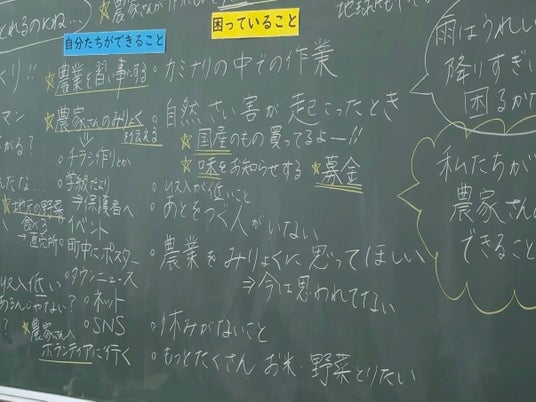 とれるのかね…
農家さんが
困っていること
自分たちができること
☆農業を習い事にする
○カミナリの中での作業
☆農家さんのみりょく
を伝える
○自然さい害が起こったとき
☆国産のもの買ってるよー!!
☆味をお知らせする ☆募金
⇒チラシ作りとか
○学級だより
⇒保護者へ
○収入が低いこと
○あとをつぐ人がいない
☆地元の野菜
食べる
→直売所
○イベント
○町中にポスター
○農業をみりょくに思ってほしい
⇒今は思われてない
○タウンニュース
○ネット
○SNS
○休みがないこと
☆農家さんへ
ボランティアに行く
○もっとたくさん お米・野菜とりたい
収入低い
あるんじゃない?
雨はうれしい
降りすぎ
困るかな
私たちが
農家さん
できること